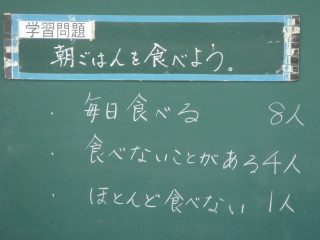 学習問題
朝ごはんを食べよう。
・毎日食べる 8人
・食べないことがある4人
・ほとんど食べない 1人